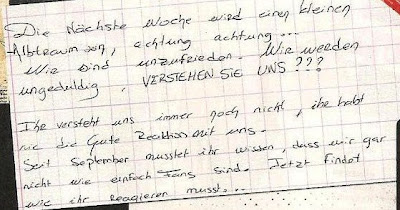 Die Nächste woche wird einen kleinen
Albtraum sein, achtung achtung...
Wie sind unzufrieden. Wir werden
ungeduldig, VERSTEHEN SIE UNS ???
Ihr versteht uns immer noch nicht, ihr habt
nie die Gute Reaktion mit uns.
Seit September musstet ihr wissen, dass wir gar
nicht wie einfach Fans sind. Jetzt findet
wie ihr Reagieren musst...